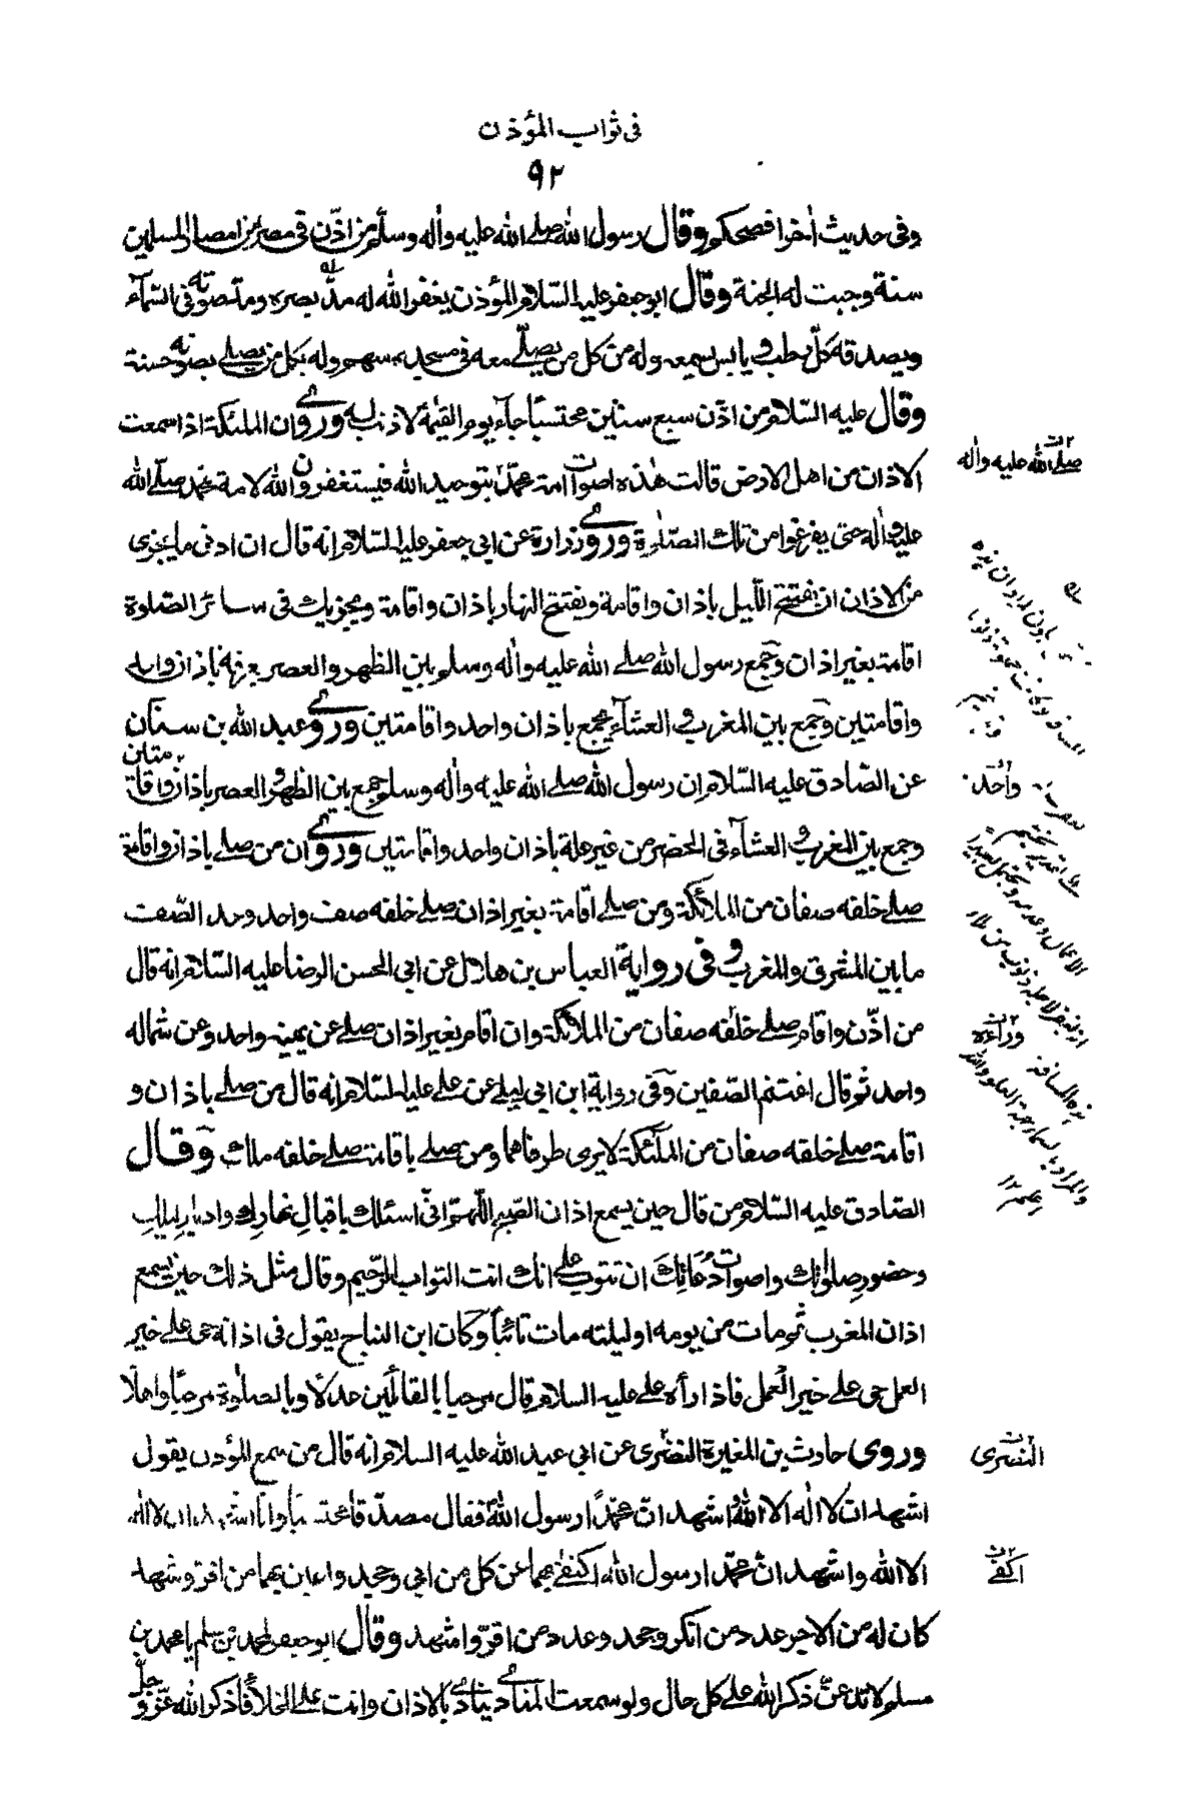 فى ثواب المؤذن
٩٢
وفى حديث اخر افصحكم وقال رسول الله صلے الله عليه واله وسلم من اذّن فى مصر من امصار المسلمين
سنة وجبت له الجنة وقال ابو جعفر عليه السّلام المؤذن يغفر الله له مدّ بصره ومدّ صوته فى السّمآء
ويصدقه كلّ رطب ويابس يسمعه وله من كل من يصلّے معه فى مسجده سهم وله بكل من يصلے بصوته حسنة
وقال عليه السّلام من اذّن سبع سنين محتسبًا جآء يوم القيٰمة لا ذنب له وروى ان الملئكة اذا سمعت
الاذان من اهل الارض قالت هٰذه اصوات امة محمّد بتوحيد الله فيستغفرون الله لامة محمّد صلّے الله
عليه واٰله حتى يفرغوا من تلك الصّلٰوة وروى زرارة عن ابى جعفر عليه السّلام انه قال ان ادنى ما يجزى
من الاذان ان يفتتح اللّيل باذان واقامة ويفتتح النهار باذان واقامة ويجزيك فى سائر الصّلوة
اقامة بغير اذان وجمع رسول الله صلے الله عليه واٰله وسلم بين الظهر والعصر بعرفة باذان واحد
واقامتين وجمع بين المغرب والعشآء بجمع باذان واحد واقامتين وروى عبد الله بن سنان
عن الصّادق عليه السّلام ان رسول الله صلے الله عليه واٰله وسلم جمع بين الظهر والعصر باذان واقامتين
وجمع بين المغرب والعشآء فى الحضر من غير علة باذان واحد واقامتين وروى ان من صلے باذان واقامة
صلے خلفه صفان من الملائكة ومن صلے اقامة بغير اذان صلے خلفه صف واحد وحد الصّف
ما بين المشرق والمغرب وفى رواية العباس بن هلال عن ابى الحسن الرضا عليه السّلام انه قال
من اذّن واقام صلے خلفه صفان من الملائكة وان اقام بغير اذان صلے عن يمينه واحد وعن شماله
واحد ثم قال اغتنم الصّفين وفى رواية ابن ابى ليلے عن علے عليه السّلام انه قال من صلے باذان و
اقامة صلے خلفه صفان من الملٰئكة لا يرى طرفاهما ومن صلے باقامة صلے خلفه ملك وقال
الصّادق عليه السّلام من قال حين يسمع اذان الصّبح اللّهمّ انّى اسئلك باقبال نهارك وادبار ليلك
وحضور صلواتك واصوات دعائك ان تتوب علے انك انت التواب الرّحيم وقال مثل ذلك حين يسمع
اذان المغرب ثم مات من يومه او ليلته مات تائبًا وكان ابن النباح يقول فى اذانه حى على خير
العمل حى علے خير العمل فاذا رأه علے عليه السلام قال مرحبا بالقائلين عدلًا وبالصلوٰة مرحبًا واهلًا
وروى حارث بن المغيرة النضرى عن ابى عبد الله عليه السلام انه قال من سمع المؤذن يقول
اشهد ان لا اله الا الله اشهد انّ محمّدًا رسول الله فقال مصدّقا محتسبًا وانا اشهد ان لا اله
الا الله واشهد انّ محمّدا رسول الله اكتفى بهما عن كل من ابى وجحد واعين بهما من اقر وشهد
كان له من الاجر عدد من انكر وجحد وعدد من اقرّ واشهد وقال ابو جعفر لمحمد بن مسلم يا محمد بن
مسلم لا تدعنّ ذكر الله علے كل حال ولو سمعت المنادى ينادى بالاذان وانت علے الخلآء فاذكر الله عزّ وجلّ
صلے الله عليه واٰله
واحد
وراءه
النصرى
اكتفى